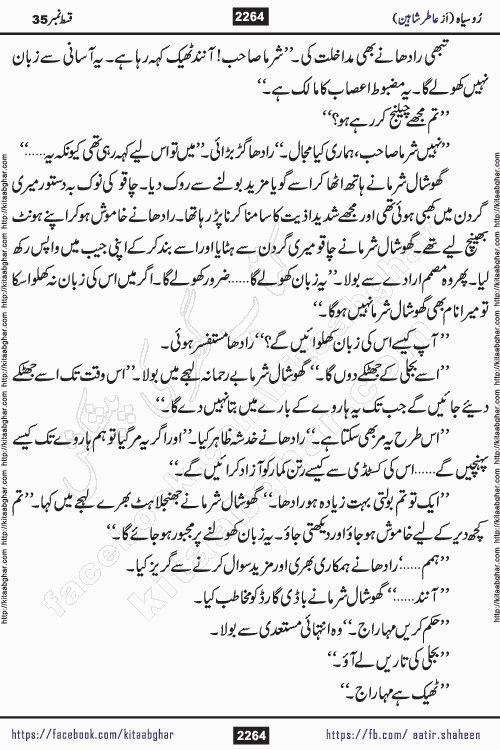 رُوسیاہ (از عاطر شاہین)
2264
قسط نمبر 35
تبھی رادھا نے بھی مداخلت کی۔ ’’شرما صاحب! آنند ٹھیک کہہ رہا ہے۔ یہ آسانی سے زبان
نہیں کھولے گا۔ یہ مضبوط اعصاب کا مالک ہے۔‘‘
’’تم مجھے چیلنج کر رہے ہو؟‘‘
’’نہیں شرما صاحب، ہماری کیا مجال۔‘‘ رادھا گڑبڑائی۔ ’’میں تو اس لیے کہہ رہی تھی کیونکہ یہ......‘‘
گھوشال شرما نے ہاتھ اٹھا کر اسے گویا مزید بولنے سے روک دیا۔ چاقو کی نوک بہ دستور میری
گردن میں کھبی ہوئی تھی اور مجھے شدید اذیت کا سامنا کرنا پڑ رہا تھا۔ رادھا نے خاموش ہو کر اپنے ہونٹ
بھینچ لیے تھے۔ گھوشال شرما نے چاقو میری گردن سے ہٹایا اور اسے بند کر کے اپنی جیب میں واپس رکھ
لیا۔ پھر وہ مصمم ارادے سے بولا۔ ’’یہ زبان کھولے گا...... ضرور کھولے گا۔ اگر میں اس کی زبان نہ کھلوا سکا
تو میرا نام بھی گھوشال شرما نہیں ہو گا۔‘‘
’’آپ کیسے اس کی زبان کھلوائیں گے؟‘‘ رادھا مستفسر ہوئی۔
’’اسے بجلی کے جھٹکے دوں گا۔‘‘ گھوشال شرما بے رحمانہ لہجے میں بولا۔ ’’اس وقت تک اسے جھٹکے
دیئے جائیں گے جب تک یہ ہاروے کے بارے میں بتا نہیں دے گا۔‘‘
’’اس طرح یہ مر بھی سکتا ہے۔‘‘ رادھا نے خدشہ ظاہر کیا۔ ’’اور اگر یہ مر گیا تو ہم ہاروے تک کیسے
پہنچیں گے...... اس کی کسٹڈی سے کیسے رتن کمار کو آزاد کرائیں گے۔‘‘
’’ایک تو تم بولتی بہت زیادہ ہو رادھا۔‘‘ گھوشال شرما نے جھنجلاہٹ بھرے لہجے میں کہا۔ ’’تم
کچھ دیر کے لیے خاموش ہو جاؤ اور دیکھتی جاؤ۔ یہ زبان کھولنے پر مجبور ہو جائے گا۔‘‘
’’ہمم......‘‘ رادھا نے ہمکاری بھری اور مزید سوال کرنے سے گریز کیا۔
’’آنند......‘‘ گھوشال شرما نے باڈی گارڈ کو مخاطب کیا۔
’’حکم کریں مہاراج۔‘‘ وہ انتہائی مستعدی سے بولا۔
’’بجلی کی تاریں لے آؤ۔‘‘
’’ٹھیک ہے مہاراج۔‘‘
https://facebook.com/kitaabghar
2264
https://fb.com/ aatir.shaheen
http://kitaabghar.com http://kitaabghar.com http://kitaabghar.com http://kitaabghar.com http://kitaabghar.com http://kitaabghar.com
http://kitaabghar.com http://kitaabghar.com http://kitaabghar.com http://kitaabghar.com http://kitaabghar.com http://kitaabghar.com